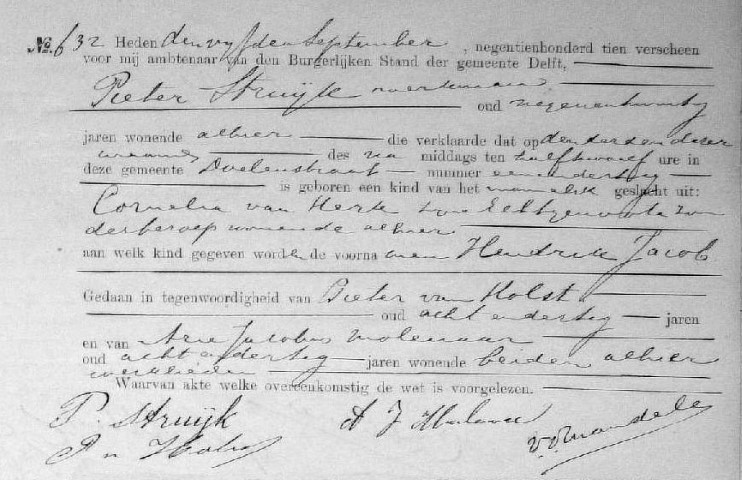 No. 632 Heden den vijfden September, negentienhonderd tien verscheen
voor mij ambtenaar van den Burgerlijken Stand der gemeente Delft,
Pieter Struijk werkman
oud negenentwintig
jaren wonende alhier die verklaarde dat op den derden dezer
maand des na middags ten half twaalf ure in
deze gemeente Doelenstraat nummer eenendertig
is geboren een kind van het mannelijk geslacht uit:
Cornelia van Herk zijne Echtgenoote zon
der beroep wonende alhier
aan welk kind gegeven worden de voornamen Hendrik Jacob
Gedaan in tegenwoordigheid van Pieter van Holst
oud acht endertig jaren
en van Arie Jacobus Molenaar
oud acht endertig jaren wonende beiden alhier
werklieden
Waarvan akte welke overeenkomstig de wet is voorgelezen.
P. Struijk
A J Molenaar
P v Holst